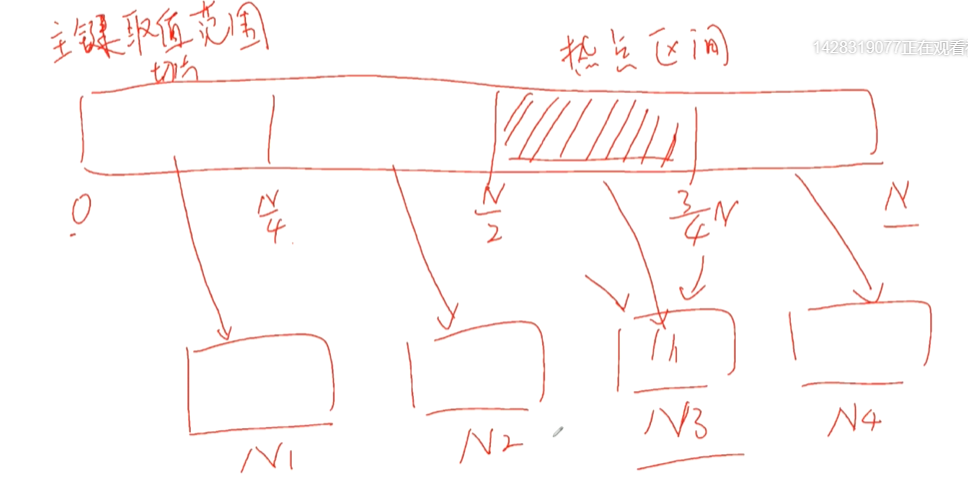 主键取值范围
切片
热点区间
1428319077正在观看
0
N/4
N/2
3/4 N
N
N1
N2
N3
N4